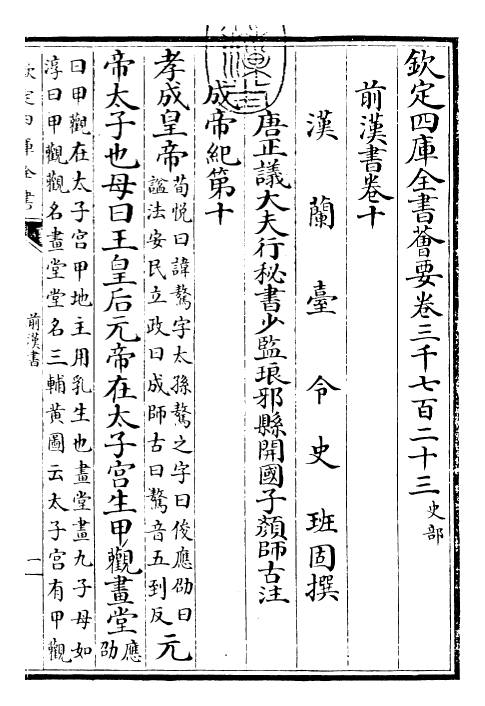 欽定四庫全書薈要卷三千七百二十三史部
前漢書卷十
漢蘭臺令史班固撰
唐正議大夫行秘書少監琅邪縣開國子顏師古注
成帝紀第十
孝成皇帝荀悅曰諱驁字太孫驁之字曰俊應劭曰
諡法安民立政曰成師古曰驁音五到反元
帝太子也母曰王皇后元帝在太子宮生甲觀畫堂應
劭
曰甲觀在太子宮甲地主用乳生也畫堂畫九子母如
淳曰甲觀觀名畫堂堂名三輔黃圖云太子宮有甲觀
欽定四庫全書
前漢書
一